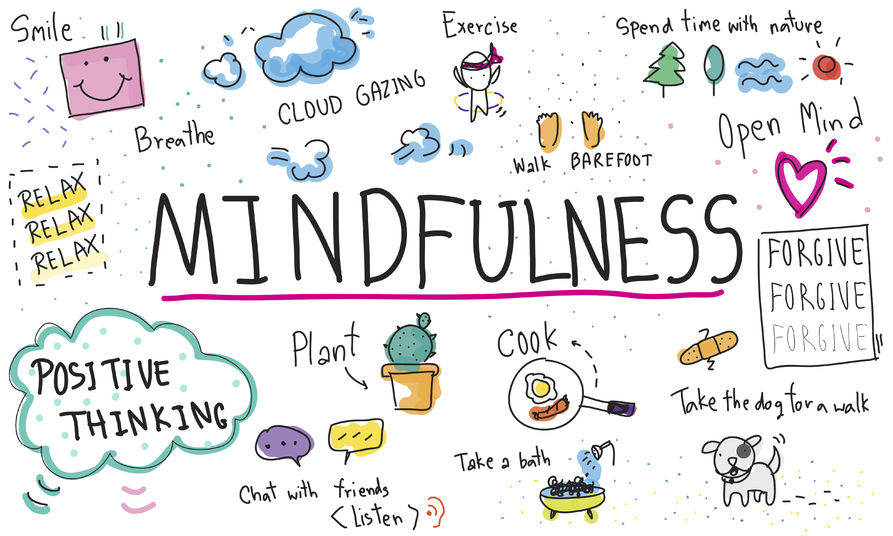 Smile
Exercise
Spend time with nature
CLOUD GAZING
Breathe
Walk BAREFOOT
Open Mind
RELAX
RELAX
RELAX
MINDFULNESS
FORGIVE
FORGIVE
FORGIVE
POSITIVE
THINKING
Plant
Cook
z
z
Take the dog for a walk
Chat with friends
<Listen>
Take a bath